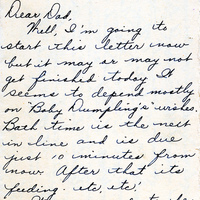 Dear Dad,
Well, I'm going to
start this letter now
but it may or may not
get finished today It
seems to depend mostly
on "Baby Dumpling's" wishes.
Bath time is the next
in line and is due
just 10 minutes from
now After that its
feeding. etc, etc!